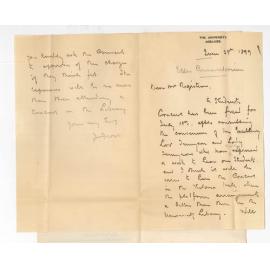 THE UNIVERSITY,
ADELAIDE.
June 29th 1899
Elder Conservatorium
Dear Mr Registrar
A Students
Concert has been fixed for
July 10th, after consulting
the convenience of His Excellency
Lord Tennyson and Lady
Tennyson who have expressed
a wish to hear our Students
and I think it would be
wise to have the Concert
in the Victoria Hall, where
the platform arrangement
is better than in the
University Library. Will
you kindly ask the Council
to approve of this change
if they think fit. The
expenses will be no more
than those attending a
Concert in the Library
Yours very truly
J. Ives